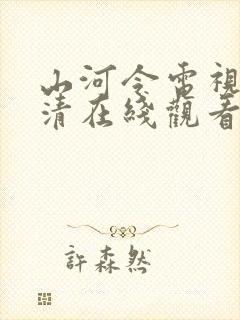 山河令電視
清在綫觀看
許森然